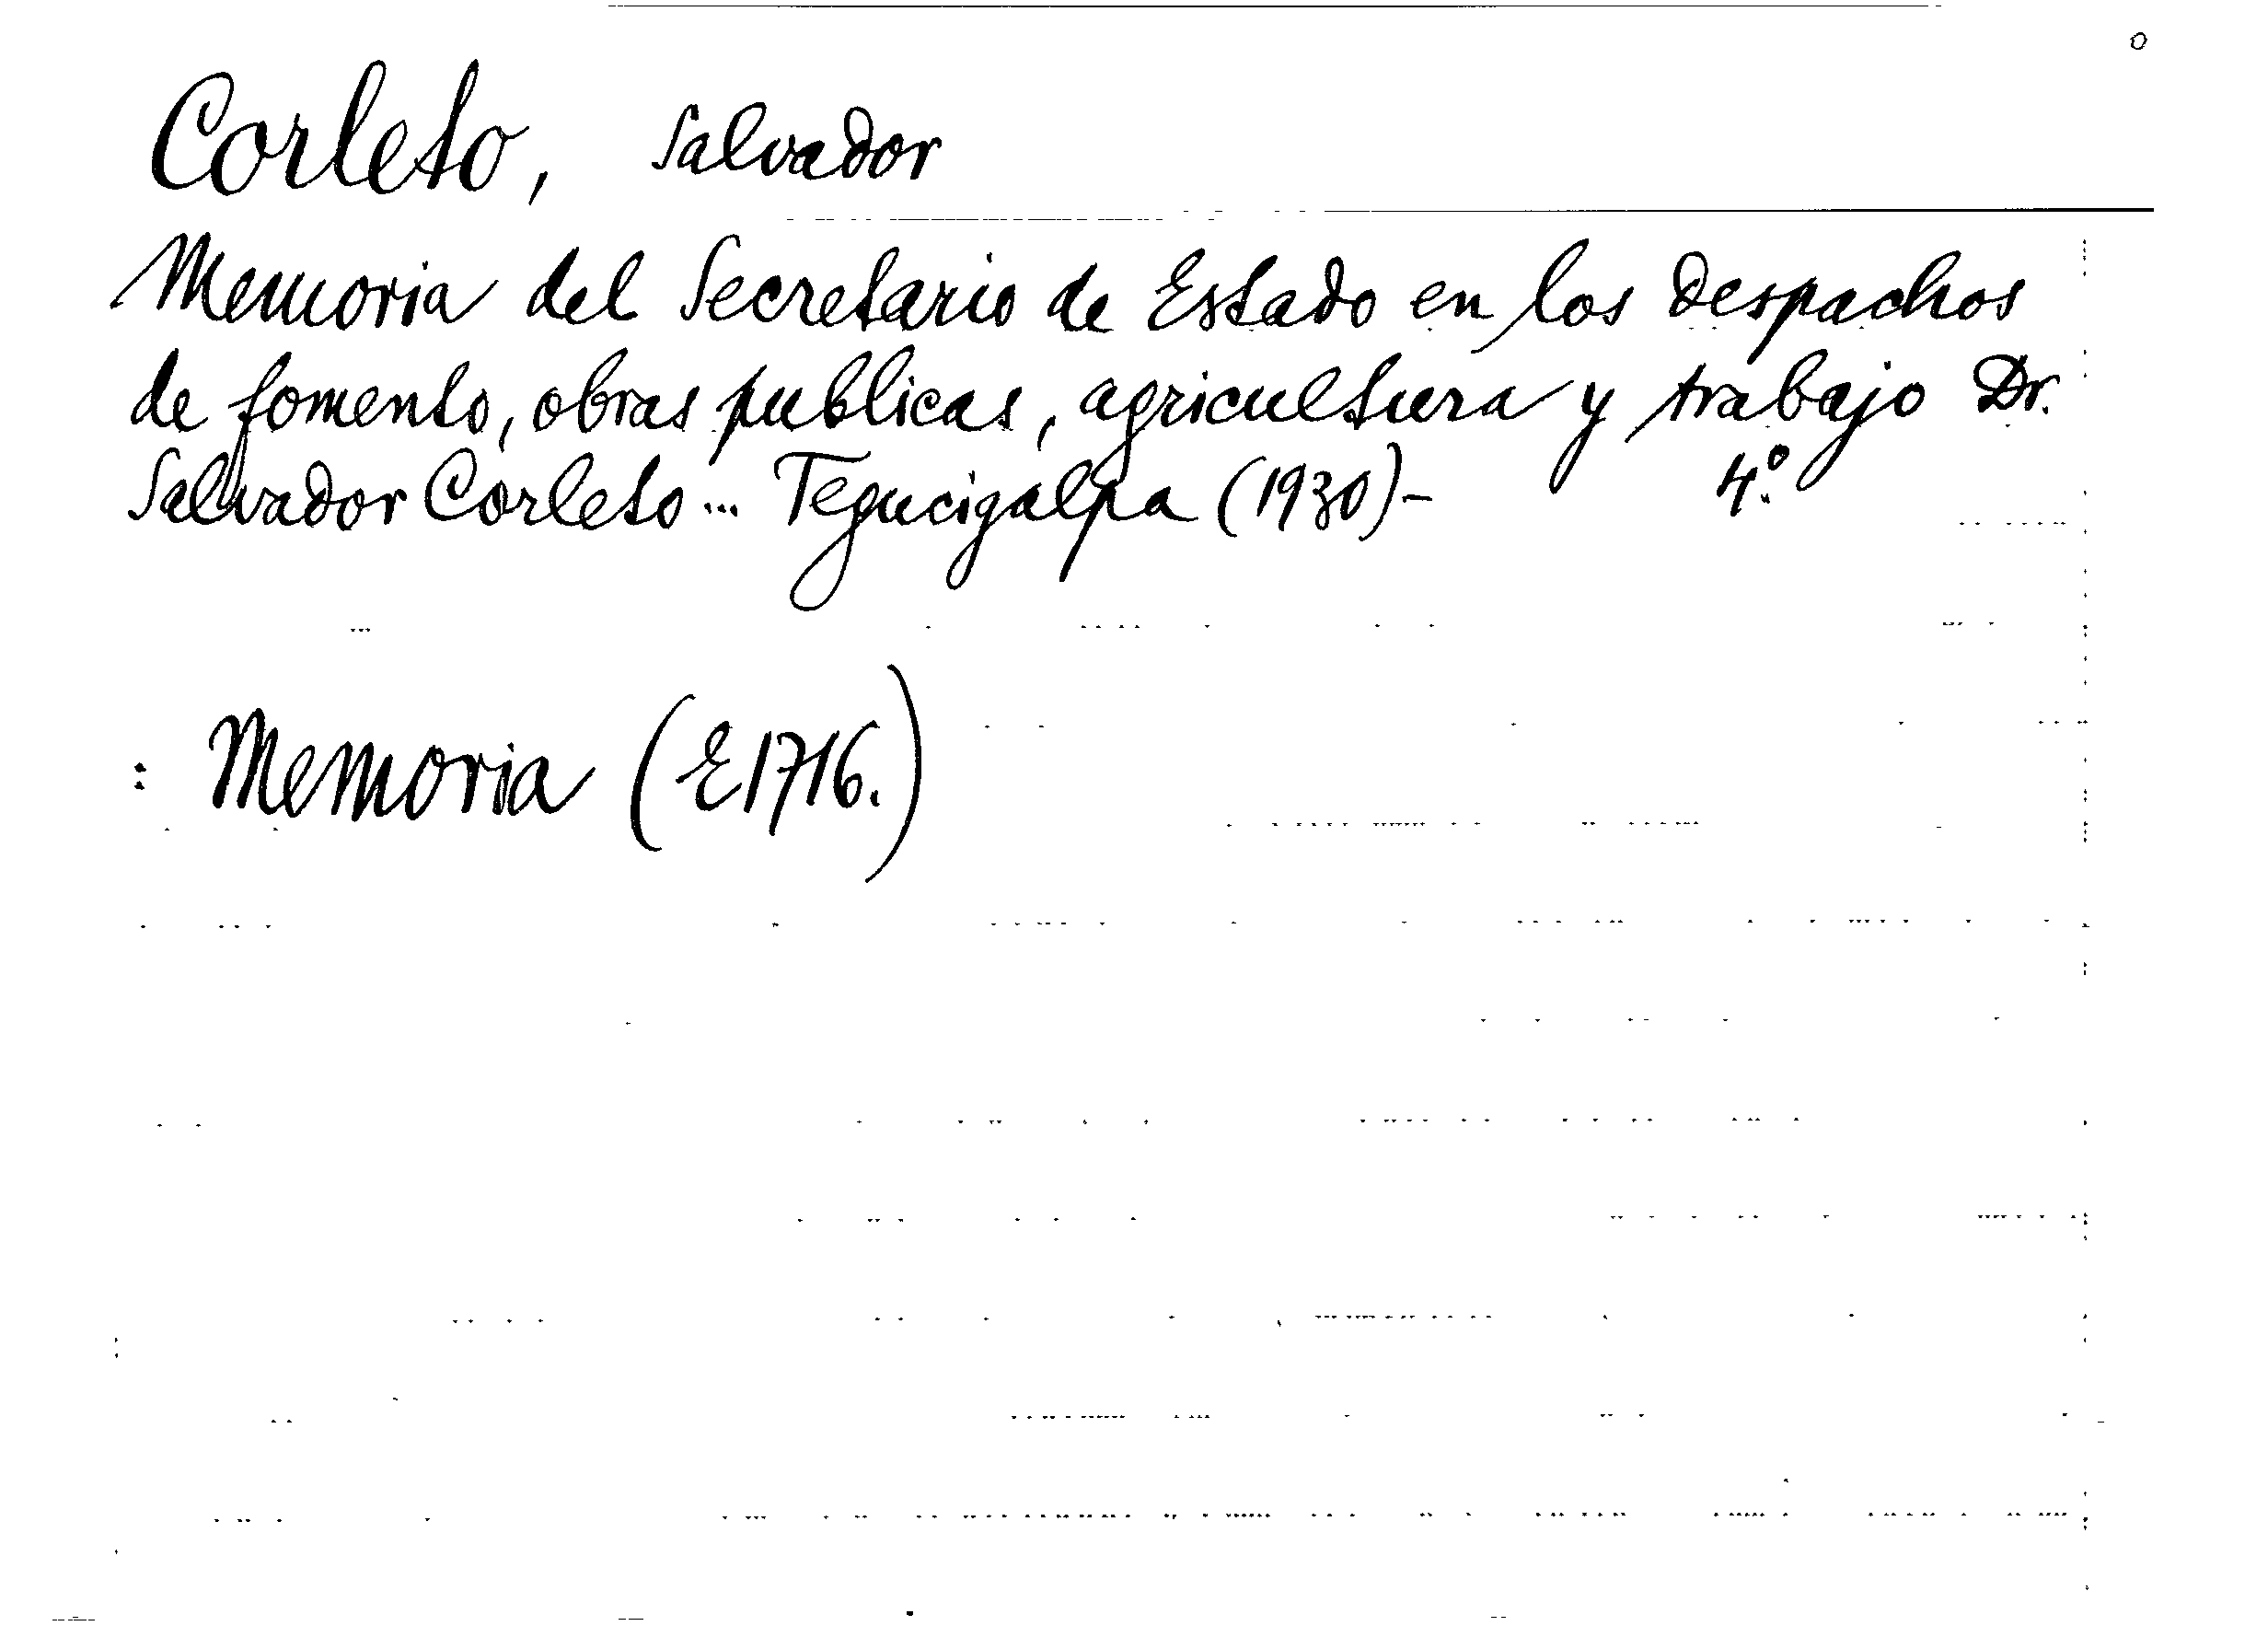 Corleto, Salvador
Memoria del Secretario de Estado en los despachos
de fomento, obras publicas, agricultura y trabajo Dr.
Salvador Corleto... Tegucigalpa (1930)- 4.º
: Memoria (E1716.)